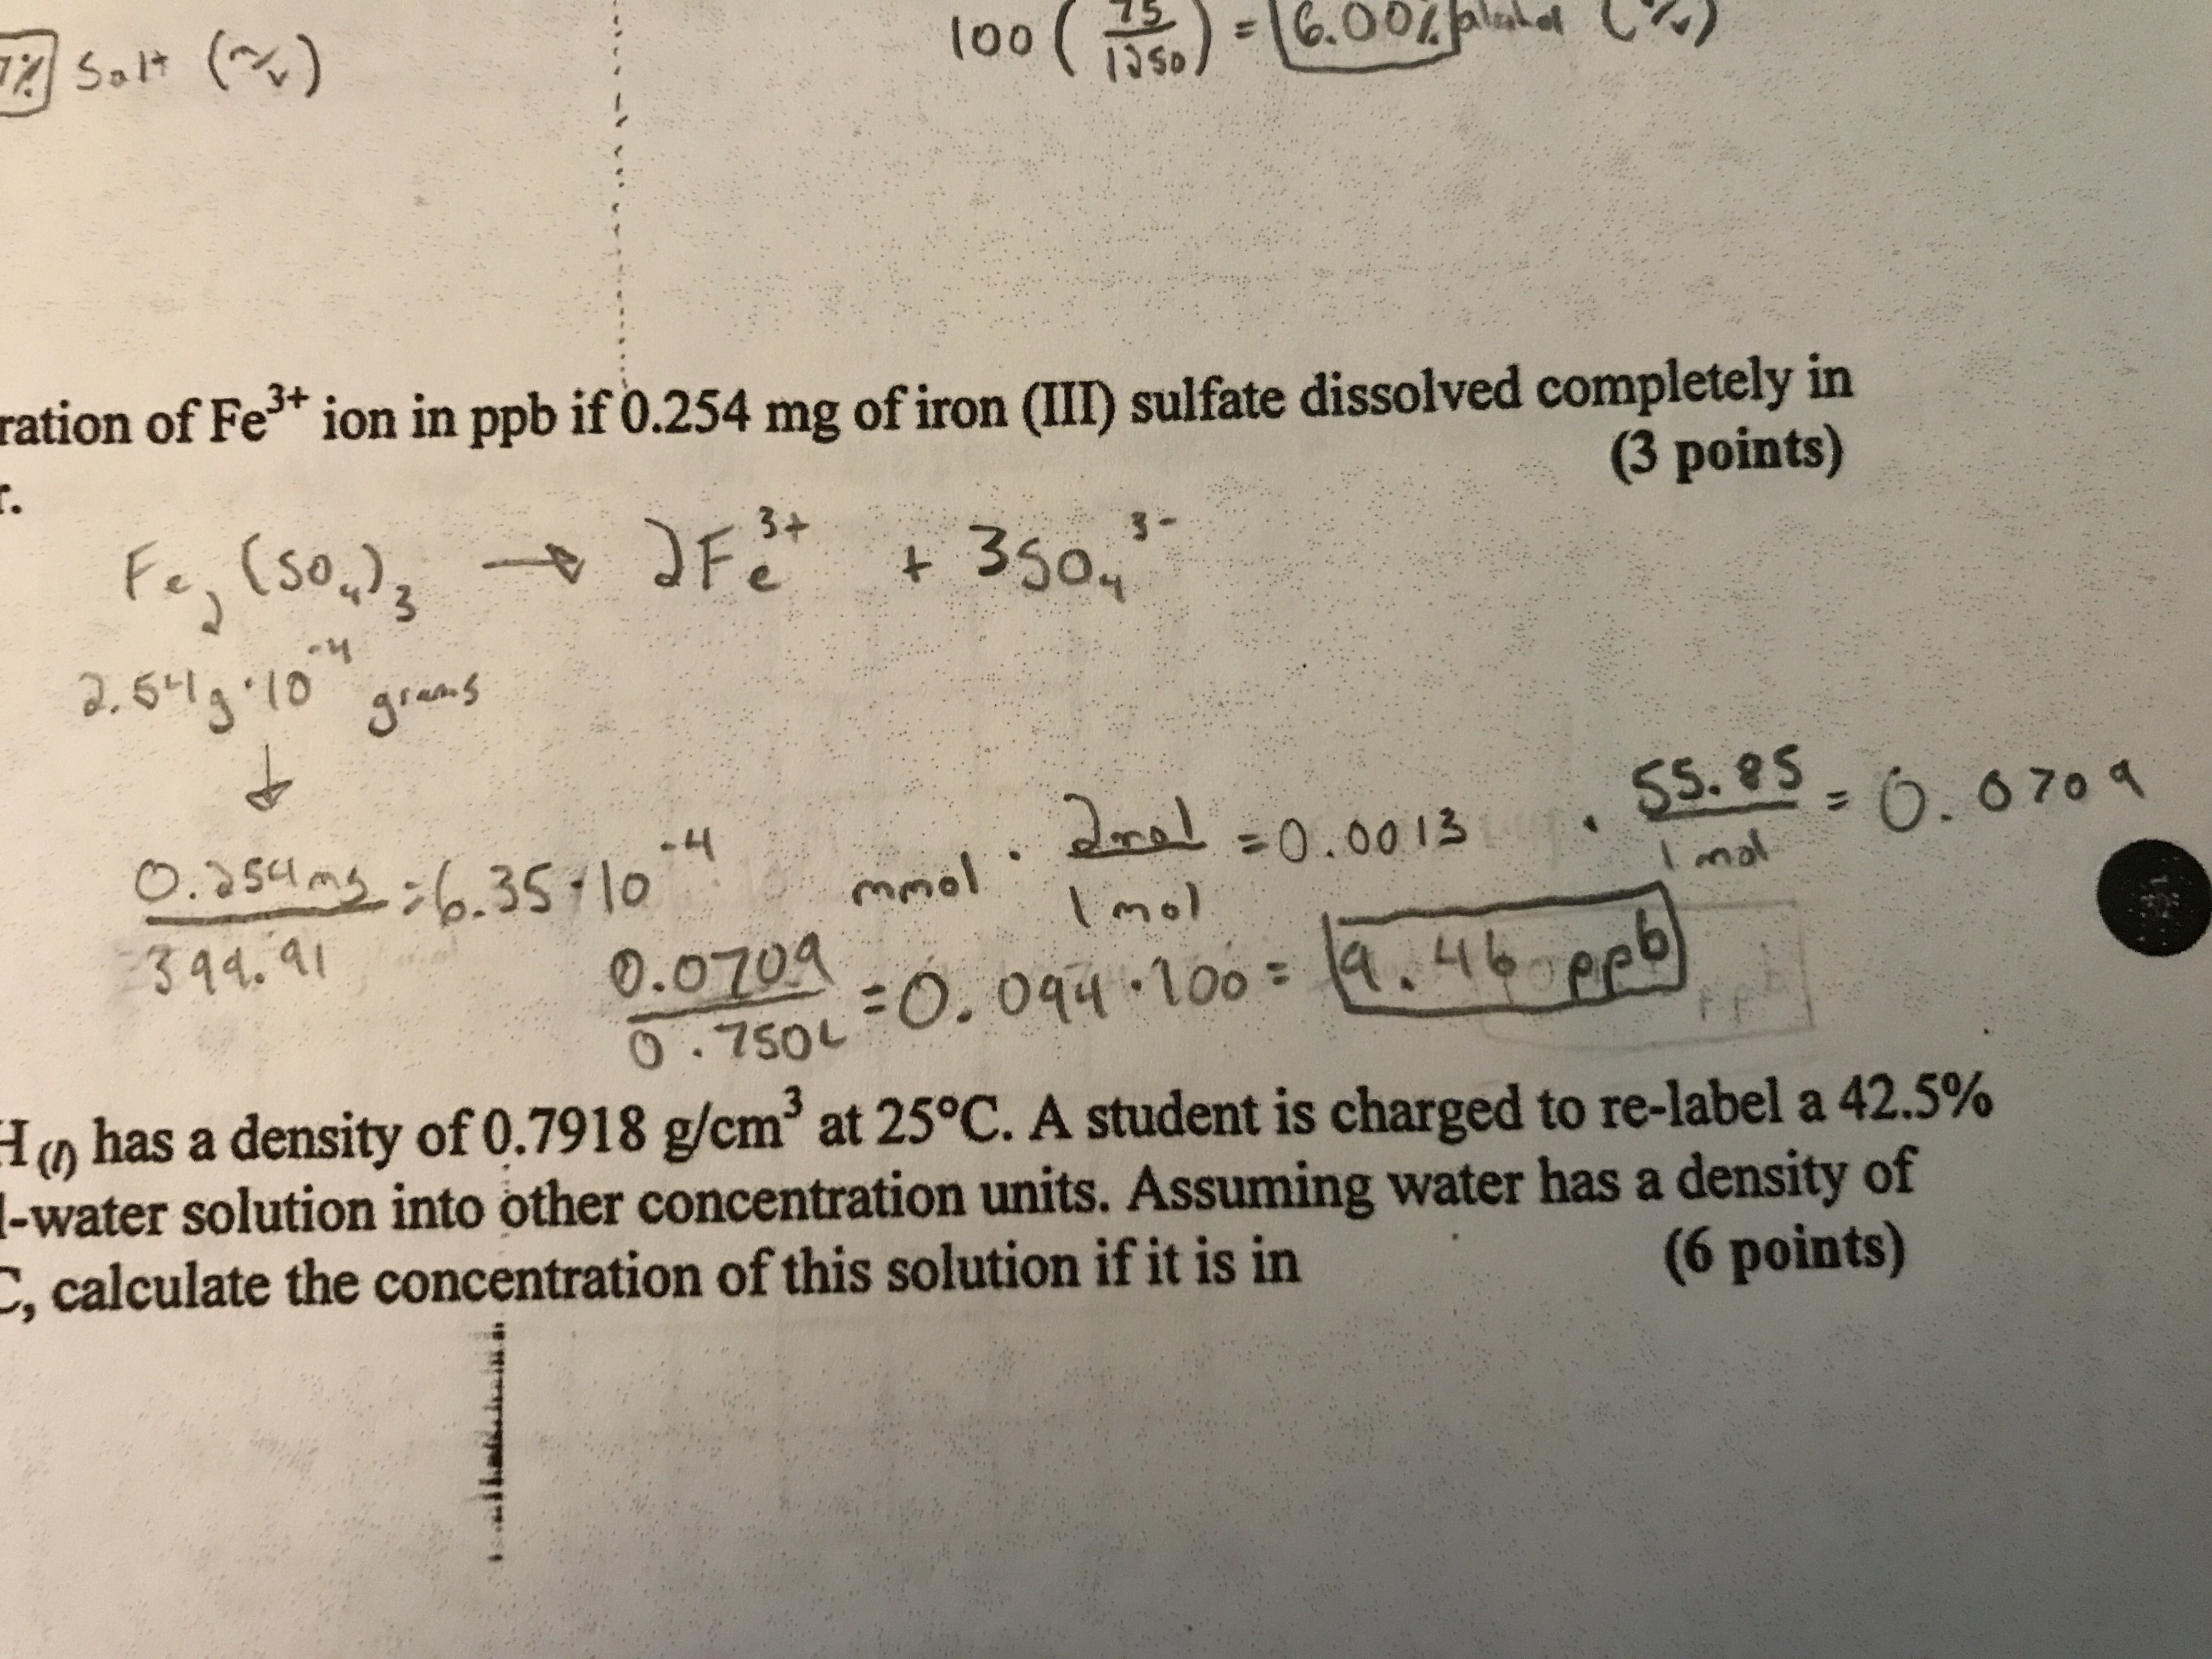 100 ( 75/1250 ) = 6.00%
% Salt
ration of Fe³⁺ ion in ppb if 0.254 mg of iron (III) sulfate dissolved completely in
(3 points)
r.
Fe₂(SO₄)₃ → 2Fe³⁺ + 3SO₄³⁻
2.54g·10⁻⁴ grams
↓
0.254mg/399.91 = 6.35·10⁻⁴ mmol · 2mol/1mol = 0.0013 · 55.85/1 mol = 0.0709
0.0709/0.750L = 0.094·100 = 9.46 ppb
H(l) has a density of 0.7918 g/cm³ at 25°C. A student is charged to re-label a 42.5%
l-water solution into other concentration units. Assuming water has a density of
C, calculate the concentration of this solution if it is in
(6 points)